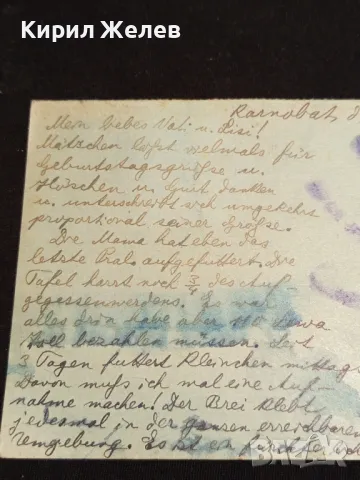 Кирил Желев
Karnobat,
Mein liebes Vati u. Lisi!
Mätzchen läßt vielmals für
Geburtstagsgrüße u.
Höschen u. Gurt danken
u. unterschreibt sich umgekehrt
proportional seiner Größe.
Die Mama hat eben das
letzte Pralo aufgefuttert. Die
Tafel harrt noch 3/4 des Auf-
gegessenwerdens. Es war
alles drin habe aber 110 Lewa
Zoll bezahlen müssen. Seit
3 Tagen futtert Kleinchen mittags
Davon muß ich mal eine Auf-
nahme machen! Der Brei klebt
jedesmal in der ganzen erreichbaren
Umgebung. Es ist ein